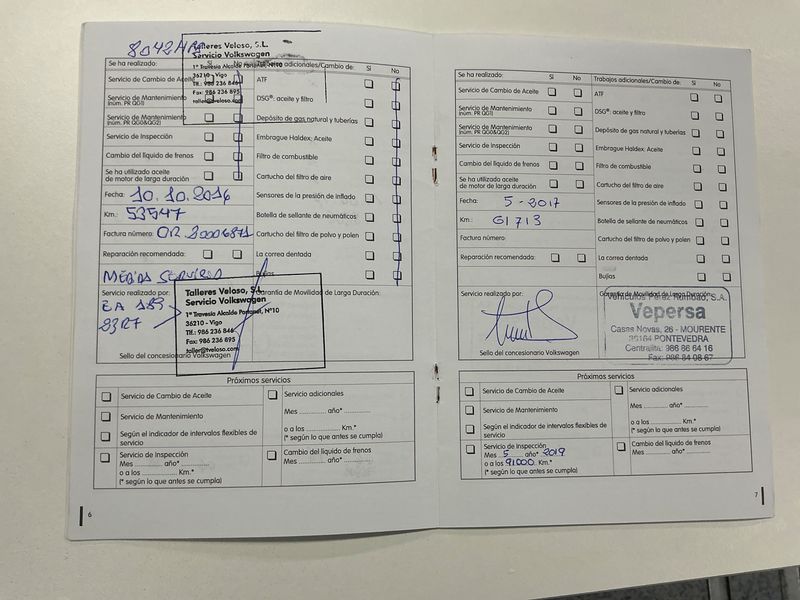 8042HRS
Talleres Veloso, S.L.
Servicio Volkswagen
1ª Travesía Alcalde Portanet, Nº10
36210 - Vigo
Tlf.: 986 236 846
Fax: 986 236 895
taller@tveloso.com
Se ha realizado:
Sí No
Trabajos adicionales/Cambio de:
Sí No
Servicio de Cambio de Aceite
ATF
Servicio de Mantenimiento
(núm. PR QG1)
DSG®: aceite y filtro
Servicio de Mantenimiento
(núm. PR QG0&QG2)
Depósito de gas natural y tuberías
Servicio de Inspección
Embrague Haldex: Aceite
Cambio del líquido de frenos
Filtro de combustible
Se ha utilizado aceite
de motor de larga duración
Cartucho del filtro de aire
Fecha: 10.10.2016
Sensores de la presión de inflado
Km.: 53547
Botella de sellante de neumáticos
Factura número: OR 20006871
Cartucho del filtro de polvo y polen
Reparación recomendada:
La correa dentada
Bujías
Servicio realizado por:
Garantía de Movilidad de Larga Duración:
Talleres Veloso, S.L.
Servicio Volkswagen
1ª Travesía Alcalde Portanet, Nº10
36210 - Vigo
Tlf.: 986 236 846
Fax: 986 236 895
taller@tveloso.com
Sello del concesionario Volkswagen
Próximos servicios
Servicio de Cambio de Aceite
Servicio adicionales
Servicio de Mantenimiento
Mes ............ año* ............
o a los ............ Km.*
(* según lo que antes se cumpla)
Según el indicador de intervalos flexibles de
servicio
Servicio de Inspección
Mes ............ año* ............
o a los ............ Km.*
(* según lo que antes se cumpla)
Cambio del líquido de frenos
Mes ............ año* ............
6
Se ha realizado:
Sí No
Trabajos adicionales/Cambio de:
Sí No
Servicio de Cambio de Aceite
ATF
Servicio de Mantenimiento
(núm. PR QG1)
DSG®: aceite y filtro
Servicio de Mantenimiento
(núm. PR QG0&QG2)
Depósito de gas natural y tuberías
Servicio de Inspección
Embrague Haldex: Aceite
Cambio del líquido de frenos
Filtro de combustible
Se ha utilizado aceite
de motor de larga duración
Cartucho del filtro de aire
Fecha: 5-2017
Sensores de la presión de inflado
Km.: 61713
Botella de sellante de neumáticos
Factura número:
Cartucho del filtro de polvo y polen
Reparación recomendada:
La correa dentada
Bujías
Servicio realizado por:
Garantía de Movilidad de Larga Duración:
Vehículos Pérez Rumbao, S.A.
Vepersa
Casas Novas, 26 - MOURENTE
36164 PONTEVEDRA
Centralita: 986 86 64 16
Fax: 986 84 08 67
Sello del concesionario Volkswagen
Próximos servicios
Servicio de Cambio de Aceite
Servicio adicionales
Servicio de Mantenimiento
Mes ............ año* ............
o a los ............ Km.*
(* según lo que antes se cumpla)
Según el indicador de intervalos flexibles de
servicio
Servicio de Inspección
Mes 5 año* 2019
o a los 91000 Km.*
(* según lo que antes se cumpla)
Cambio del líquido de frenos
Mes ............ año* ............
7